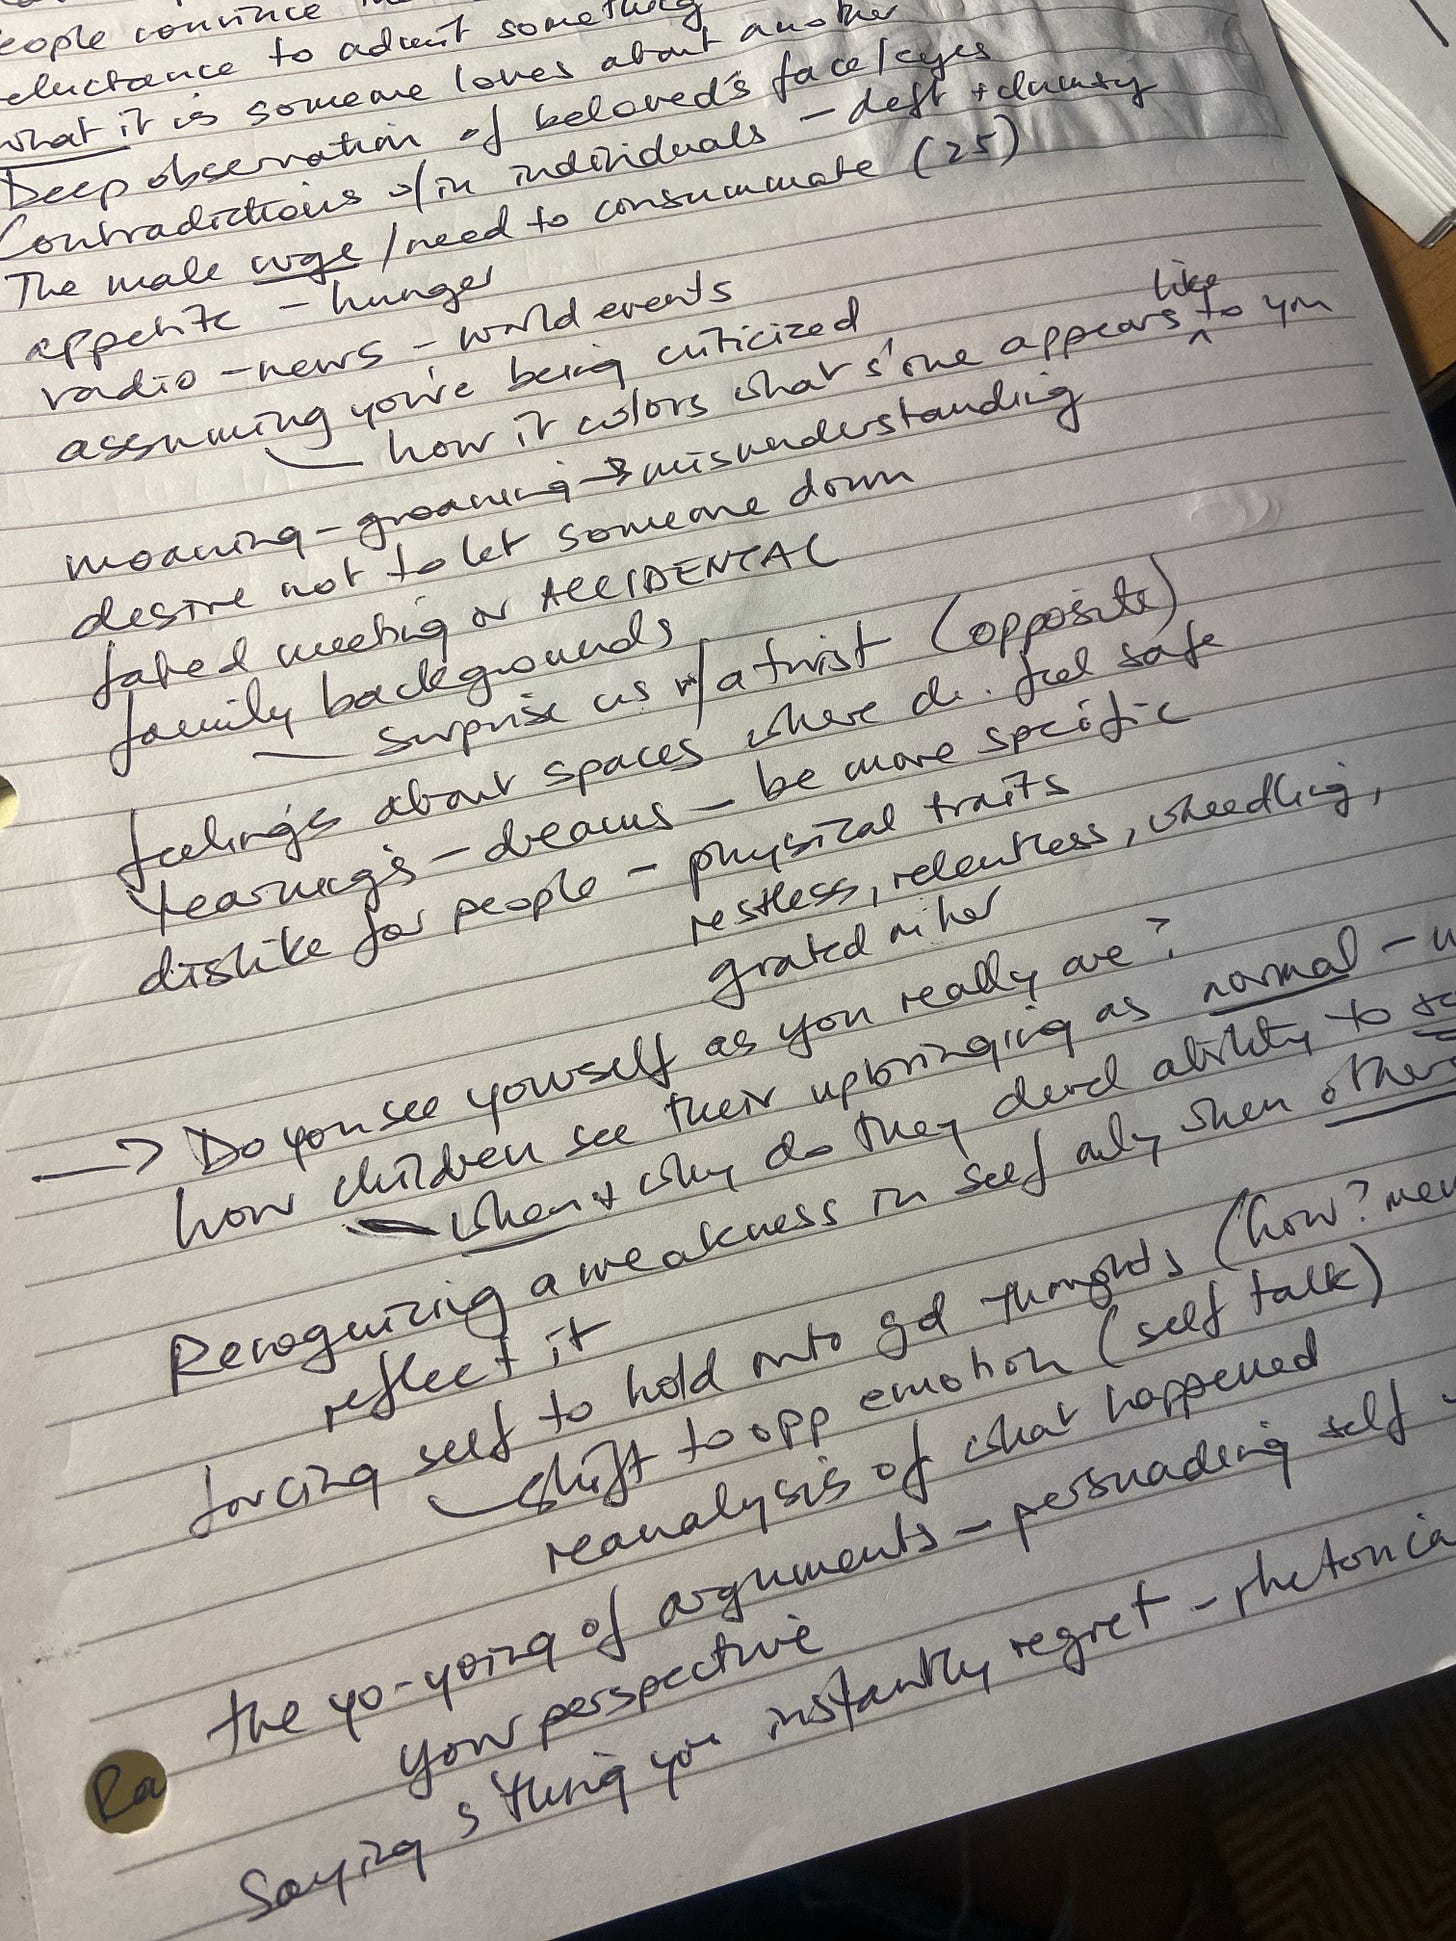 people convince
reluctance to admit something
what it is someone loves about another
Deep observation of beloved's face/eyes
Contradictions w/in individuals – deft + clumsy
The male urge / need to consummate (25)
appetite – hunger
radio – news – world events
assuming you're being criticized
how it colors what s'one appears like to you
moaning – groaning → misunderstanding
desire not to let someone down
fated meeting or ACCIDENTAL
family backgrounds
surprise us w/ a twist (opposite)
feelings about spaces where do. feel safe
Yearnings – dreams – be more specific
dislike for people – physical traits
restless, relentless, wheedling,
grated on her
→ Do you see yourself as you really are?
how children see their upbringing as normal –
– when + why do they devel ability to
Recognizing a weakness in self only when others
reflect it
forcing self to hold onto gd thoughts (how?
shift to opp emotion (self talk)
reanalysis of what happened
the yo-yoing of arguments – persuading self
your perspective
Saying s'thing you instantly regret –
Ra